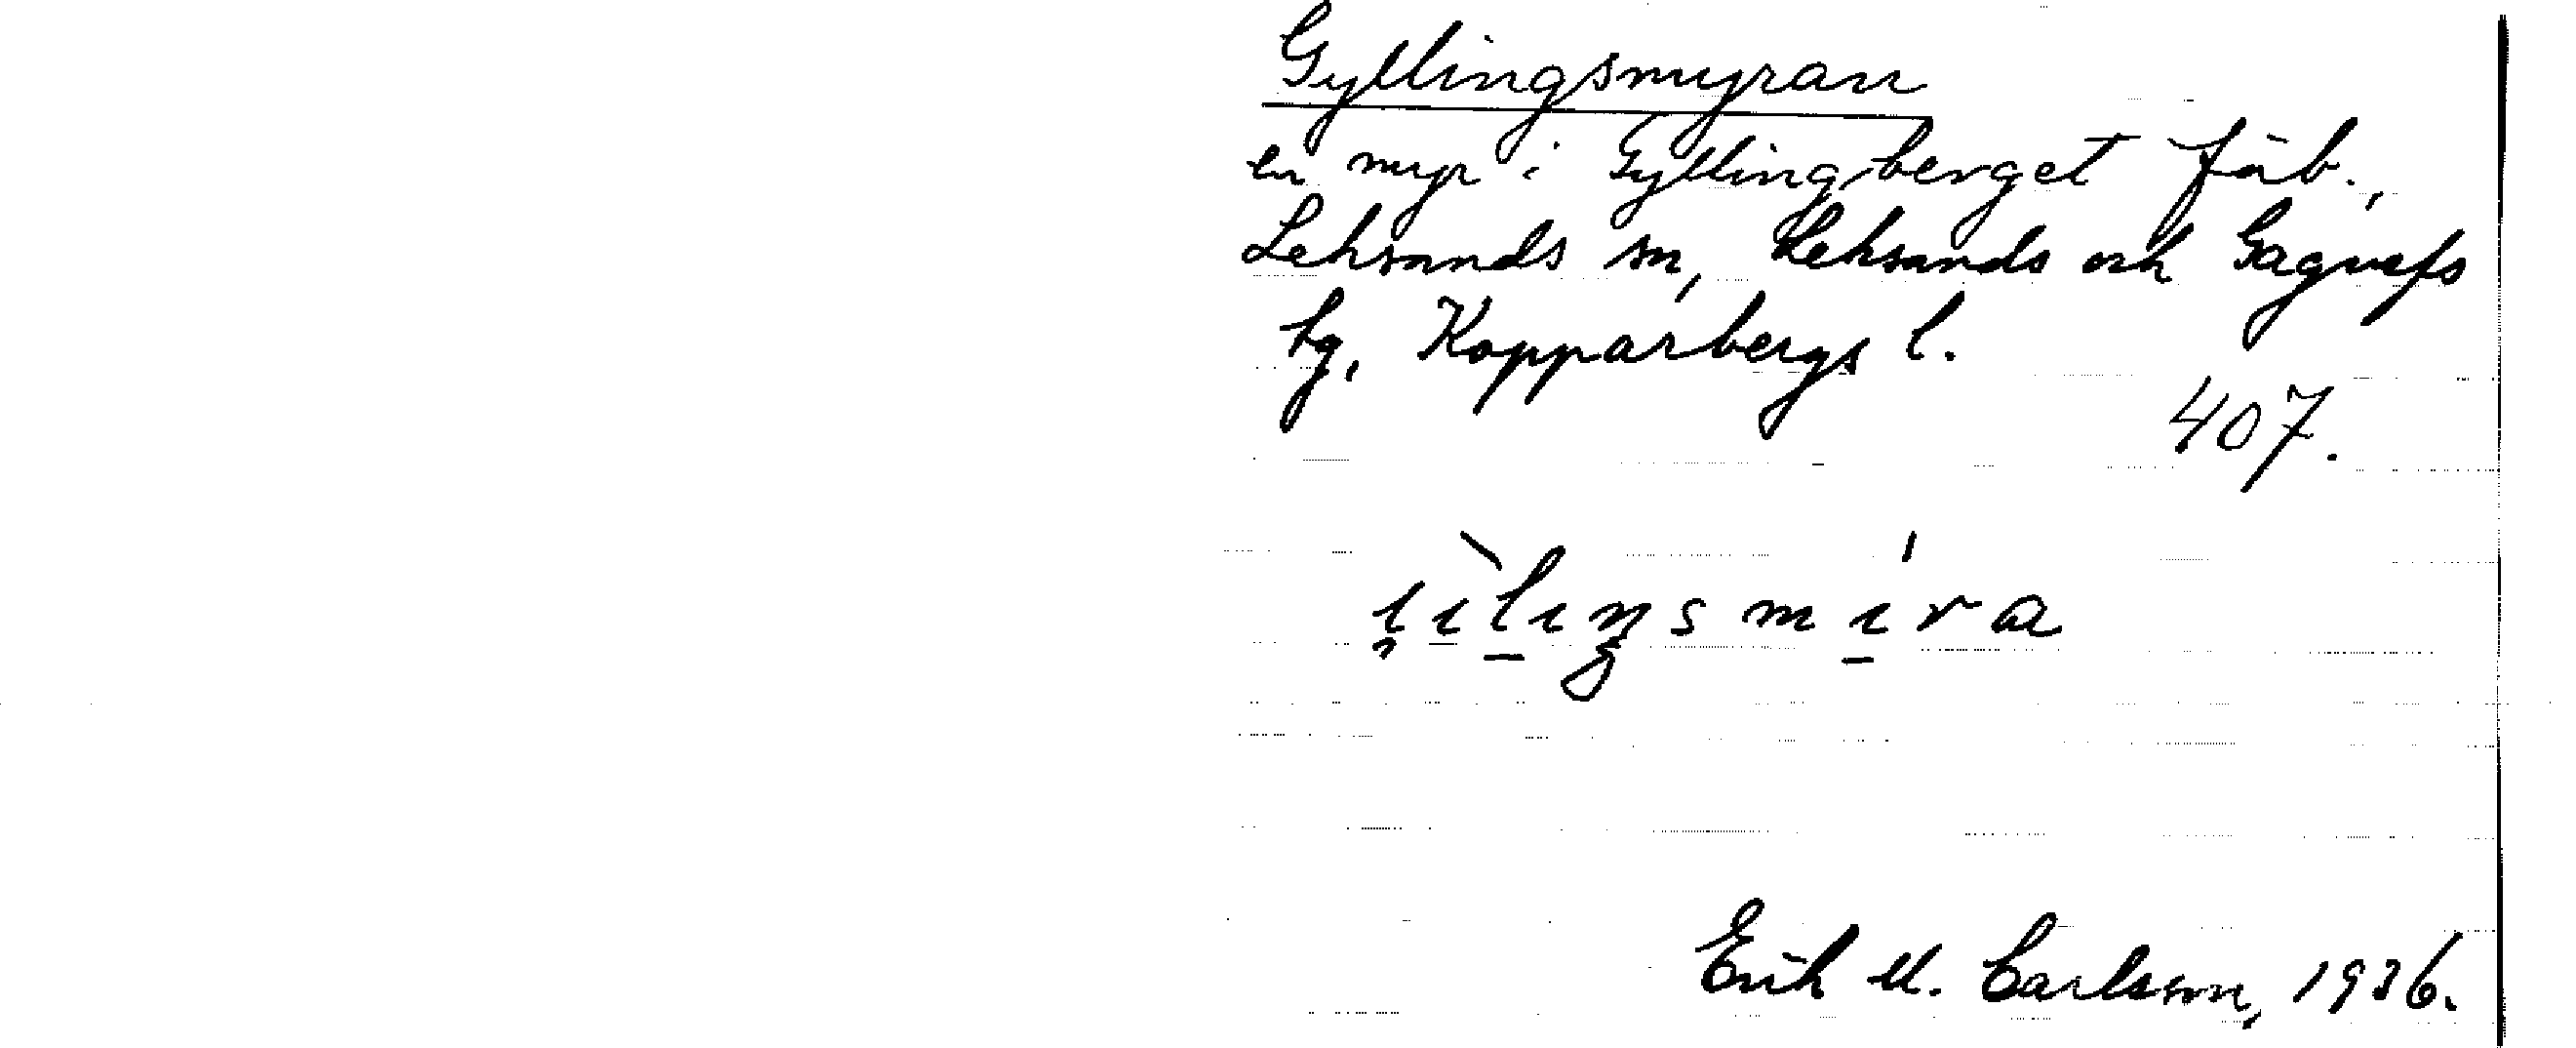 Gyllingsmyran
en myr i Gyllingberget fäb.,
Leksands sn, Leksands och Gagnefs
tg, Kopparbergs l.
407.
Erik M. Carlsson, 1936.